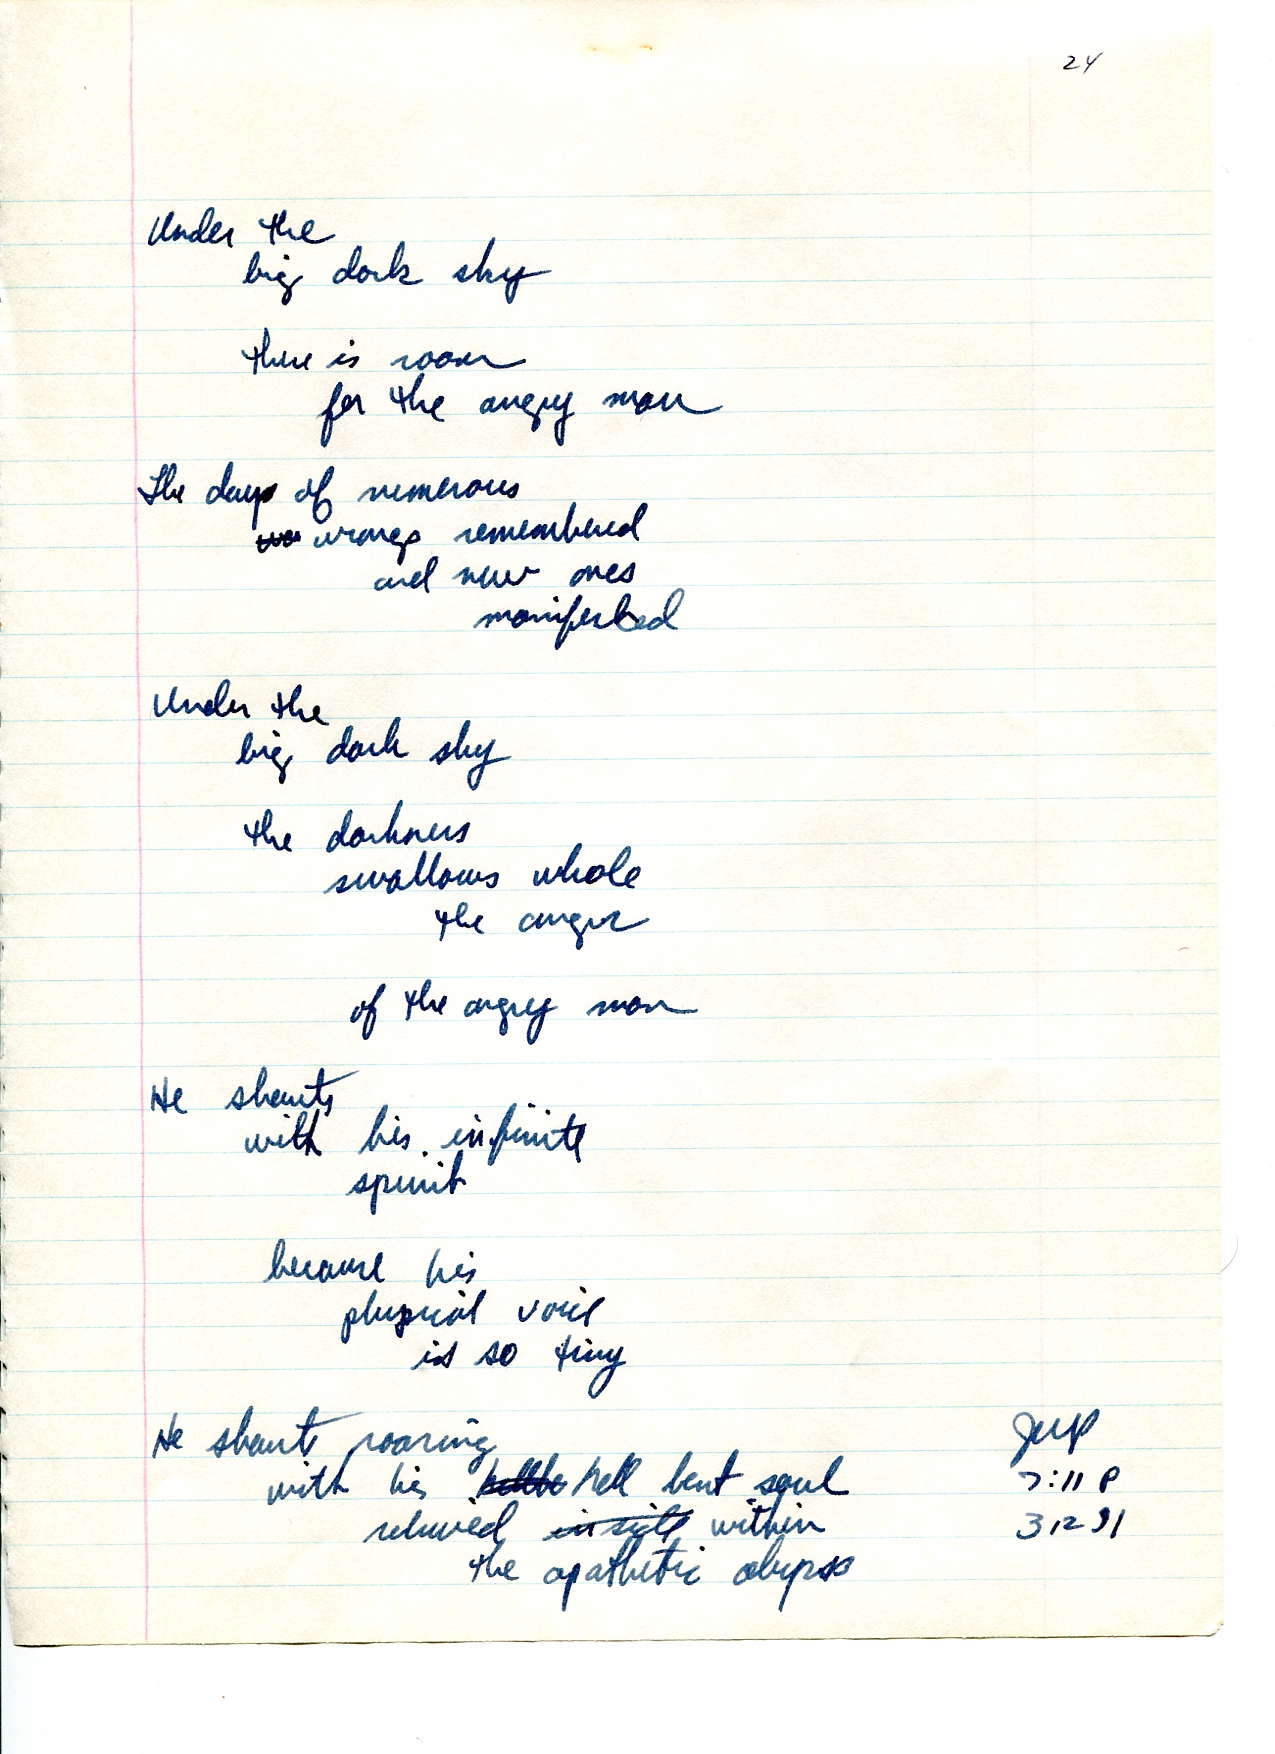 24
Under the
big dark sky
there is room
for the angry man
The days of numerous
wrongs remembered
and new ones
manifested
Under the
big dark sky
the darkness
swallows whole
the anger
of the angry man
He shouts
with his infinite
spirit
because his
physical voice
is so tiny
He shouts roaring
with his hell bent soul
inside within
the apathetic abyss
7:11 P
3 12 91